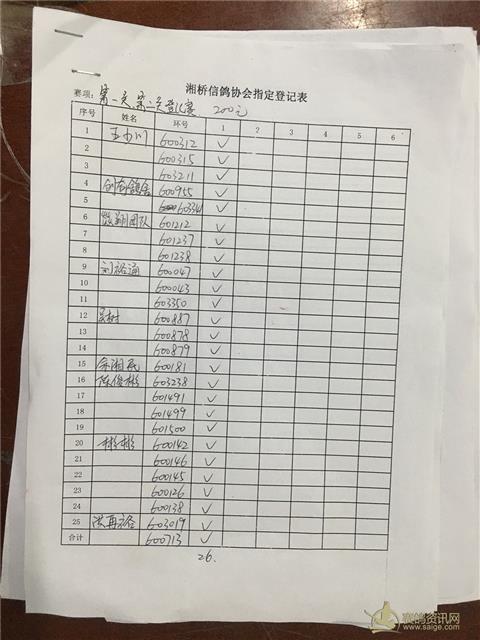 湘桥信鸽协会指定登记表
赛项：第一关第二关登记赛 200元
序号 姓名 环号 1 2 3 4 5 6
1 600312 ✓
2 600315 ✓
3 603211 ✓
4 创奇鸽舍 600955 ✓
5 603341 ✓
6 团队 601212 ✓
7 601237 ✓
8 601238 ✓
9 刘裕通 600047 ✓
10 600043 ✓
11 603350 ✓
12 吴树 600887 ✓
13 600878 ✓
14 600879 ✓
15 余湘民 600181 ✓
16 陈俊彬 603238 ✓
17 601491 ✓
18 601499 ✓
19 601500 ✓
20 彬彬 600142 ✓
21 600146 ✓
22 600145 ✓
23 600126 ✓
24 600138 ✓
25 洪再裕 603019 ✓
合计 600713 ✓
26.
赛鸽资讯网
www.saige.com